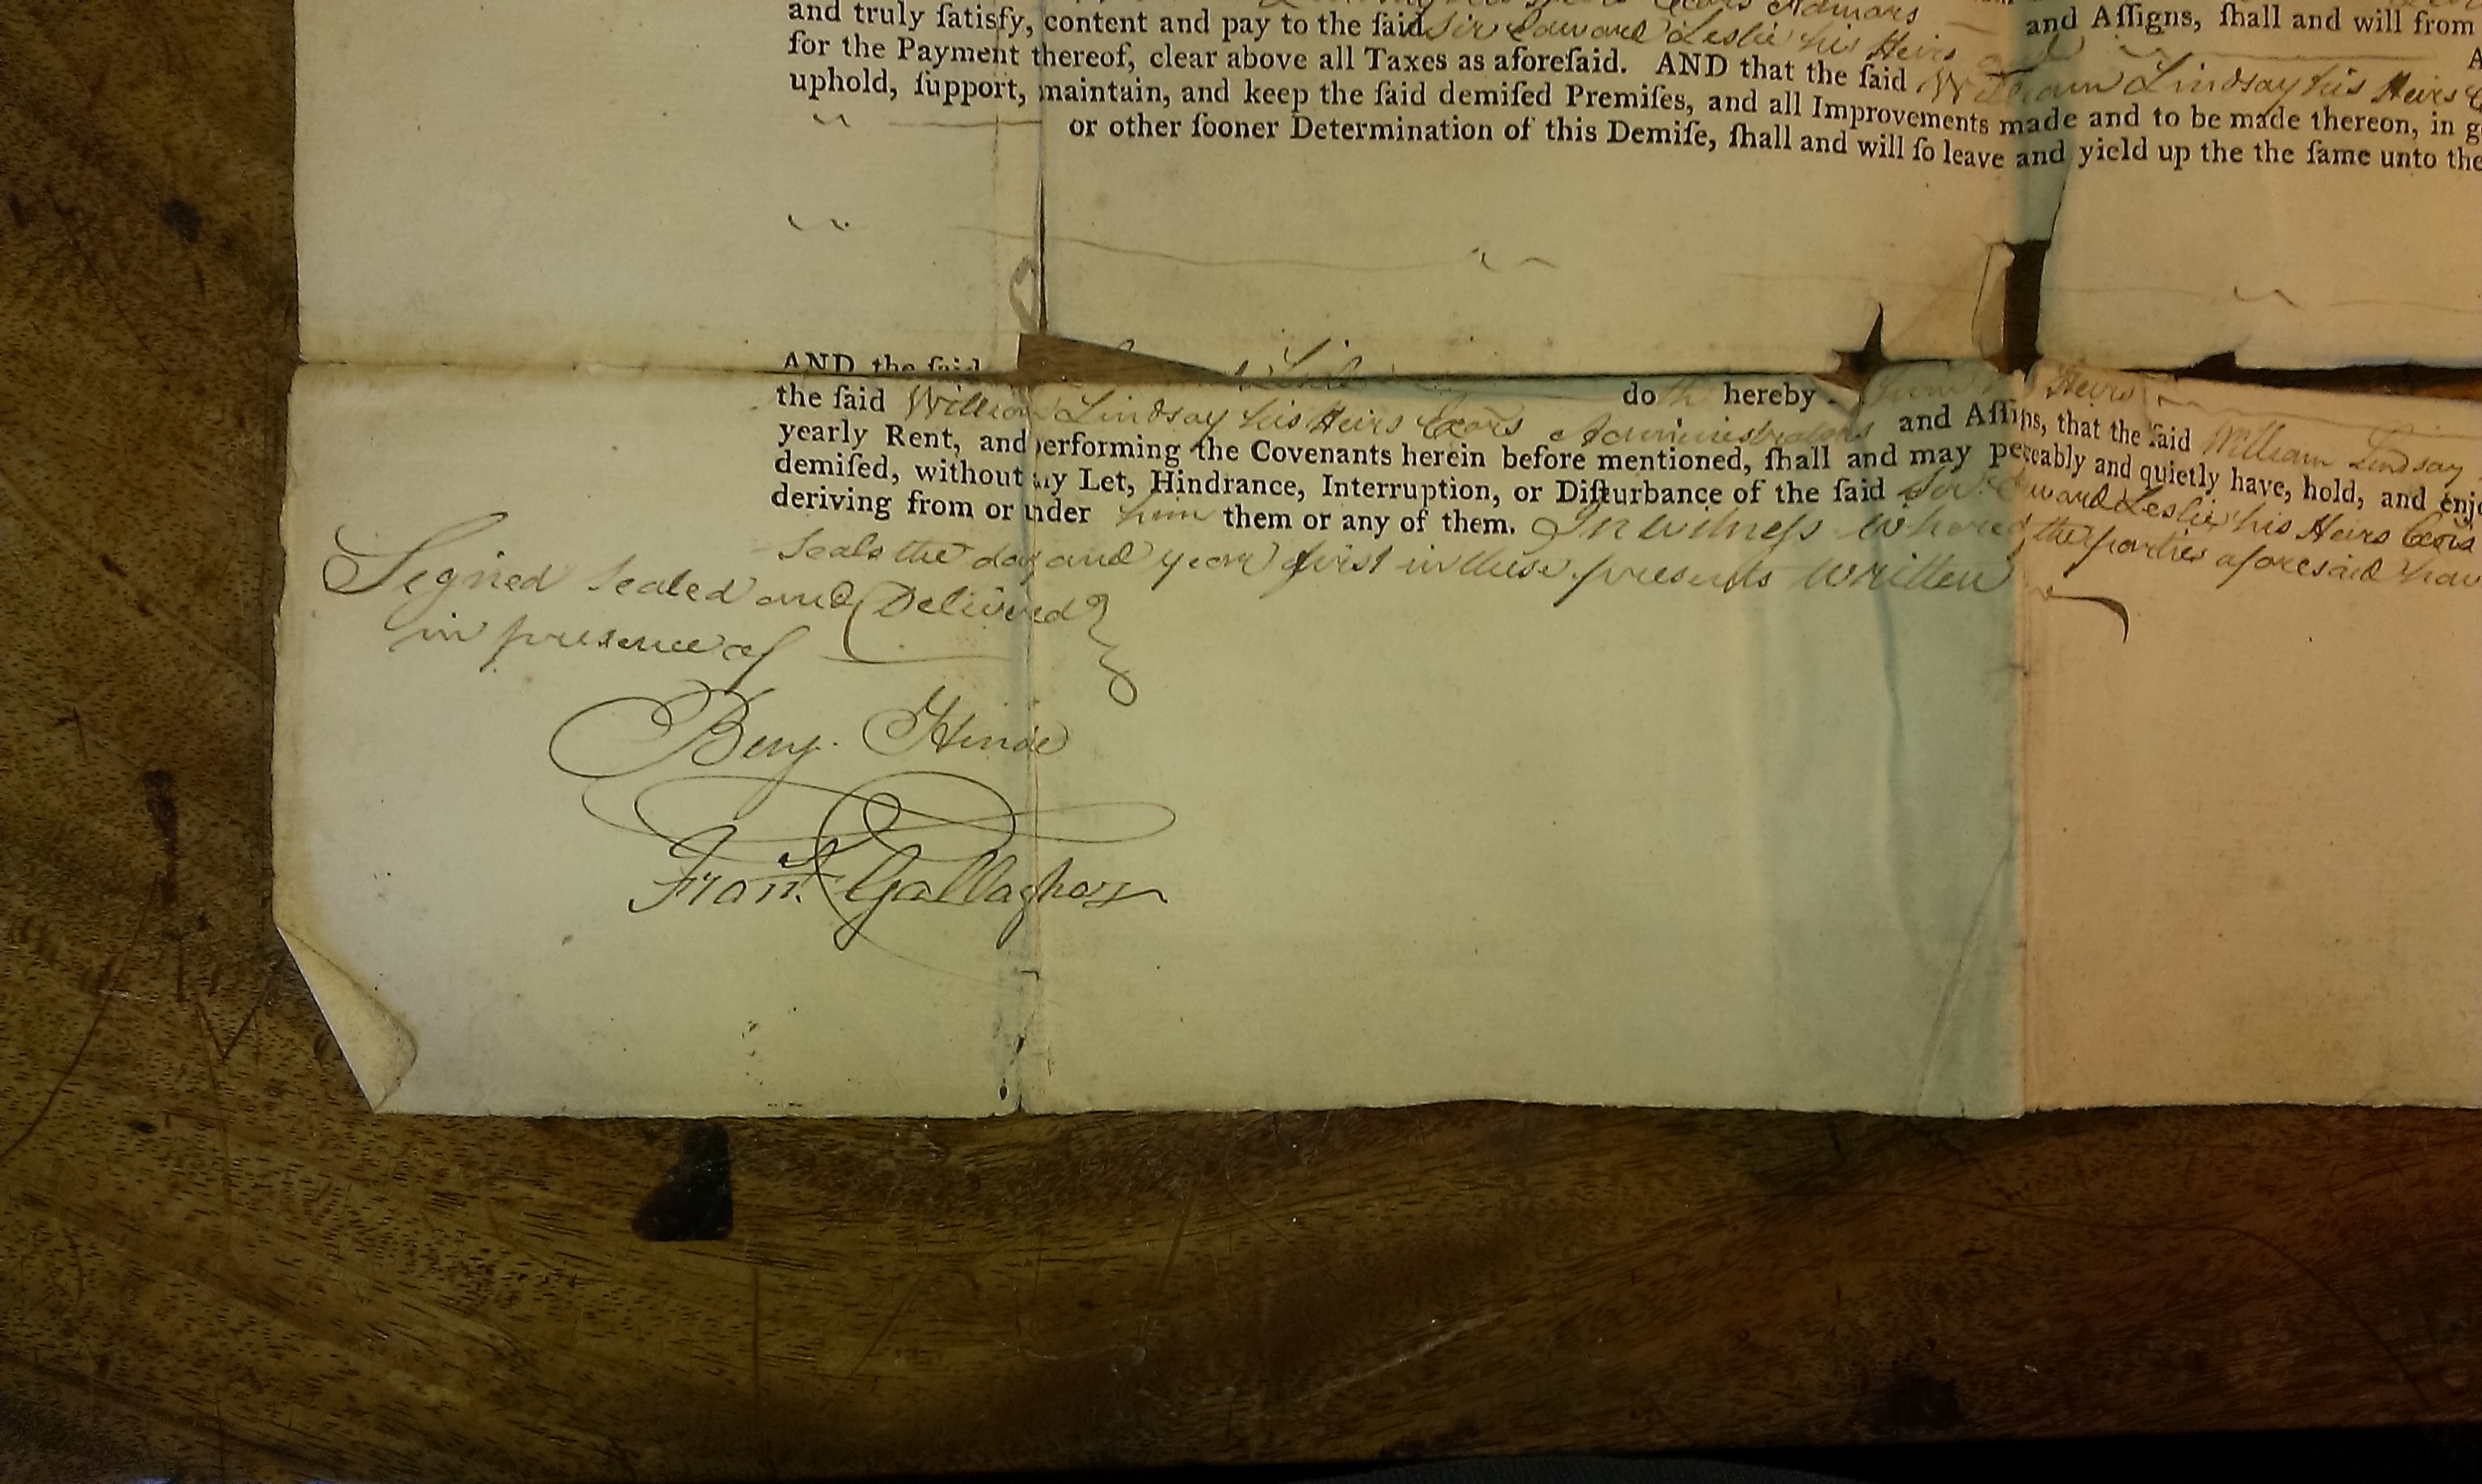 and truly ſatisfy, content and pay to the ſaid Sir Edward Leslie his Heirs and Aſſigns, ſhall and will from
for the Payment thereof, clear above all Taxes as aforeſaid. AND that the ſaid William Lindsay his Heirs
uphold, ſupport, maintain, and keep the ſaid demiſed Premiſes, and all Improvements made and to be made thereon, in
or other ſooner Determination of this Demiſe, ſhall and will ſo leave and yield up the the ſame unto the
AND the ſaid do th hereby Heirs
the ſaid William Lindsay his Heirs Exors Administrators and Aſſigns, that the ſaid William Lindsay
yearly Rent, and performing the Covenants herein before mentioned, ſhall and may peaceably and quietly have, hold, and enjo
demiſed, without any Let, Hindrance, Interruption, or Diſturbance of the ſaid Sir Edward Leslie his Heirs Exors
deriving from or under him them or any of them. In witness whereof the parties aforesaid hav
Seals the day and year first in these presents written
Signed Sealed and Delivered
in presence of
Benj. Hinde
Frans. Gallagher